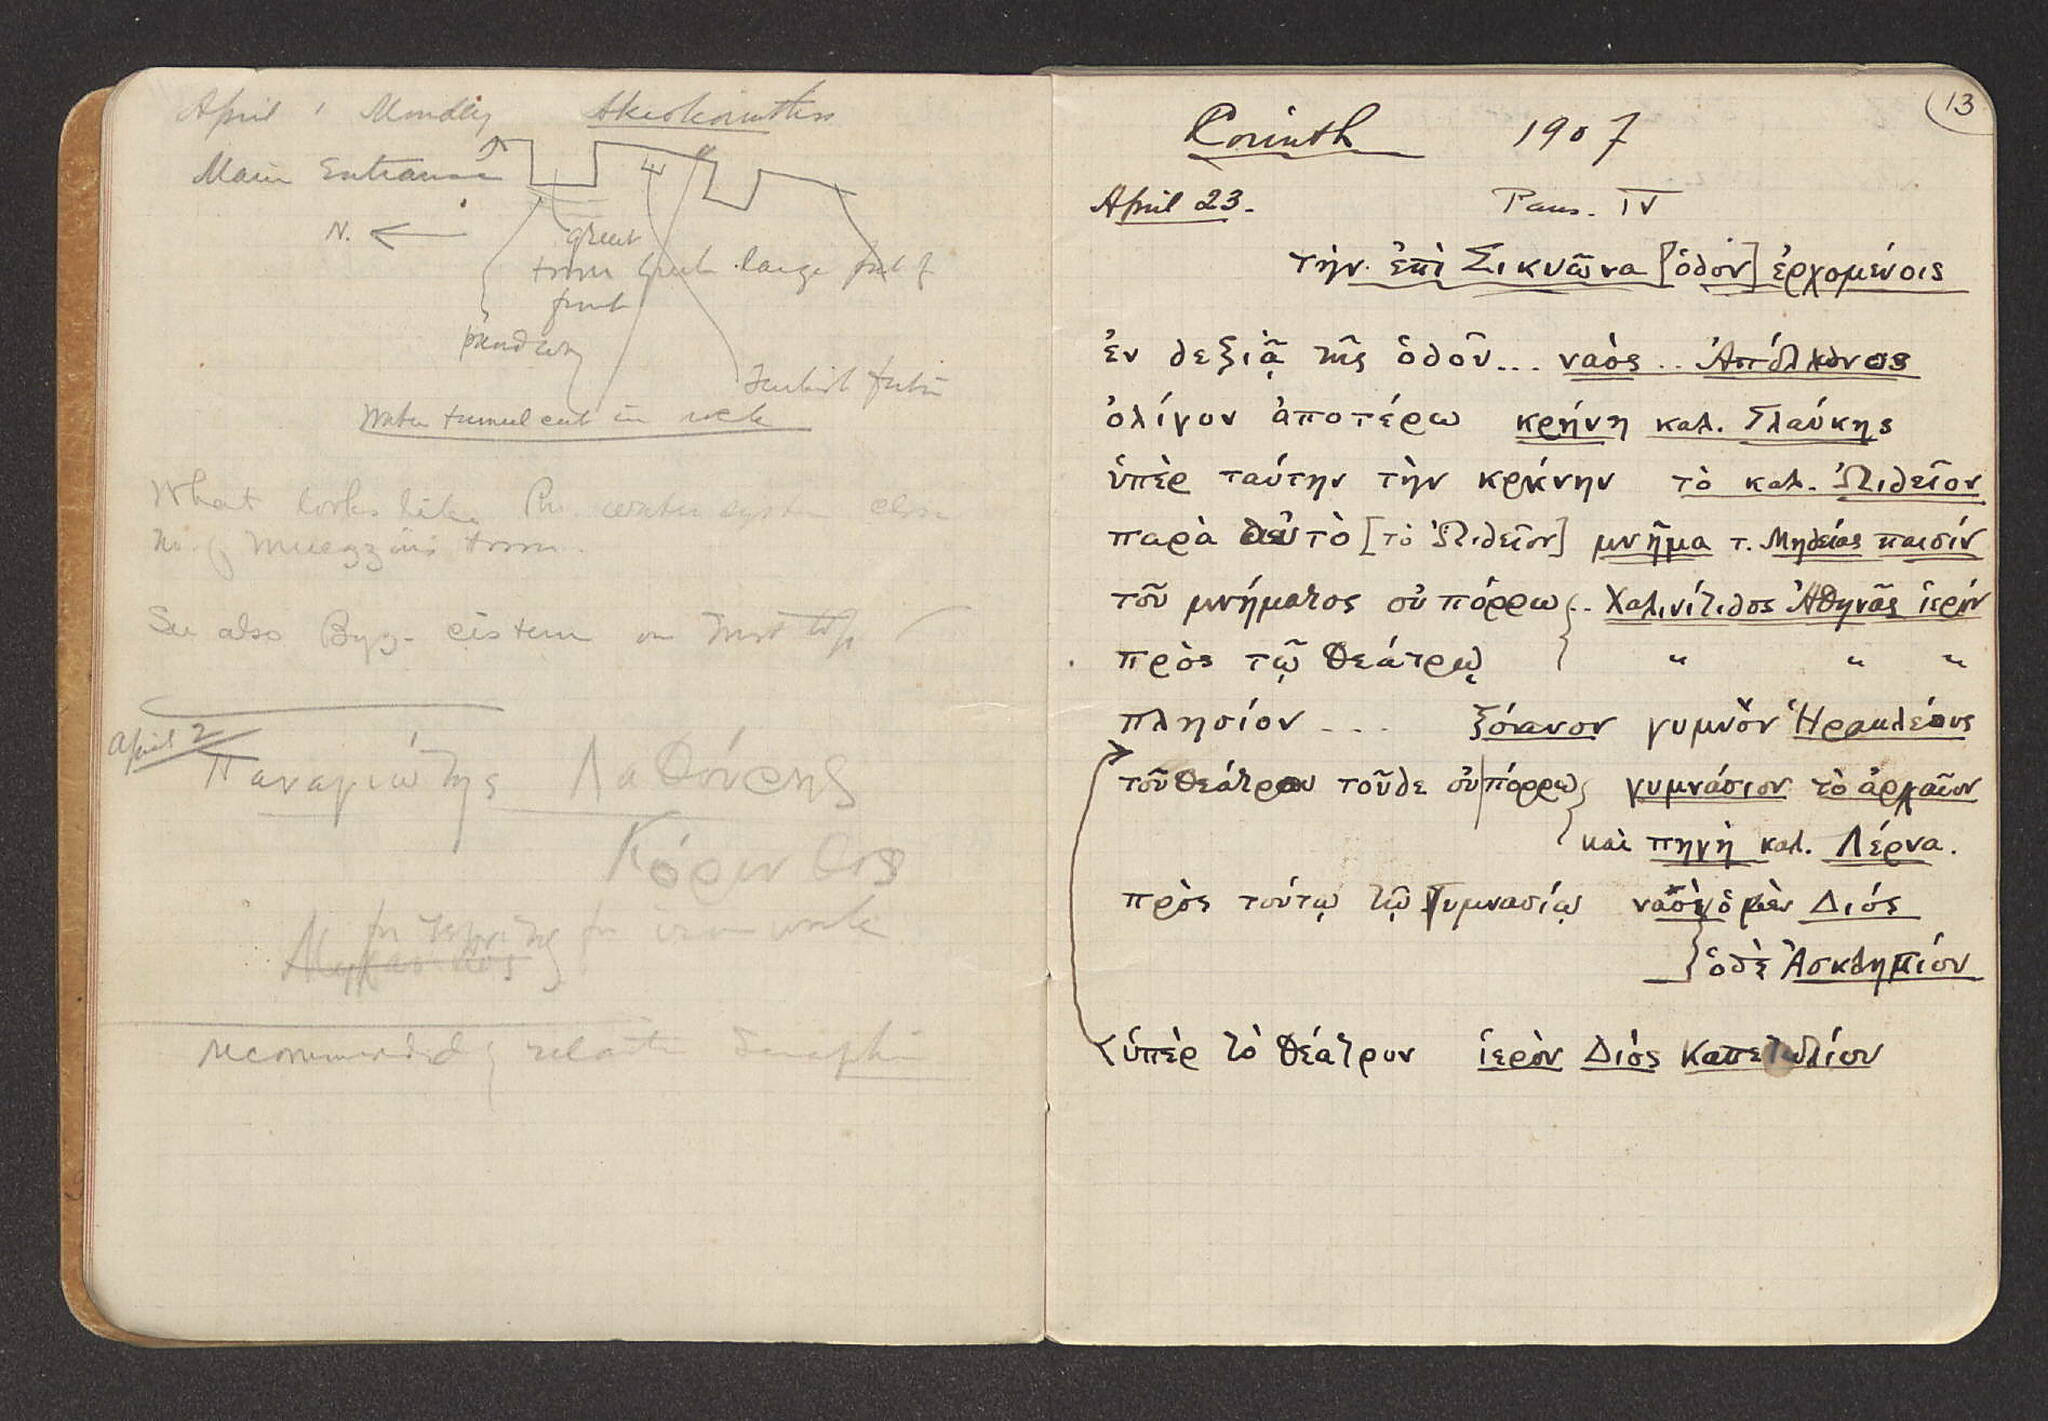 April 1 Monday Akrokorinthos
Main Entrance
N.
great
large
Turkish
Water tunnel cut in rock
What looks like Rn. water system close
No. of
See also Byz. cistern on
April 2
Παναγιώτης Λαθούρης
Κόρινθος
for for iron work
recommended
13
Corinth 1907
April 23. Paus. IV
τὴν ἐπὶ Σικυῶνα [ὁδὸν] ἐρχομένοις
ἐν δεξιᾷ τῆς ὁδοῦ... ναὸς .. Ἀπόλλωνος
ὀλίγον ἀποτέρω κρήνη καλ. Γλαύκης
ὑπὲρ ταύτην τὴν κρήνην τὸ καλ. Ὠιδεῖον
παρὰ αὐτὸ [τὸ Ὠιδεῖον] μνῆμα τ. Μηδείας παισίν
τοῦ μνήματος οὐ πόρρω .. Χαλινίτιδος Ἀθηνᾶς ἱερόν
πρὸς τῷ θεάτρῳ " " "
πλησίον ... ξόανον γυμνὸν Ἡρακλέους
τοῦ θεάτρου τοῦδε οὐ πόρρω γυμνάσιον τὸ ἀρχαῖον
καὶ πηγὴ καλ. Λέρνα.
πρὸς τούτῳ τῷ γυμνασίῳ ὁ μὲν Διός
ὁ δὲ Ἀσκληπίου
ὑπὲρ τὸ θέατρον ἱερὸν Διὸς Καπετωλίου